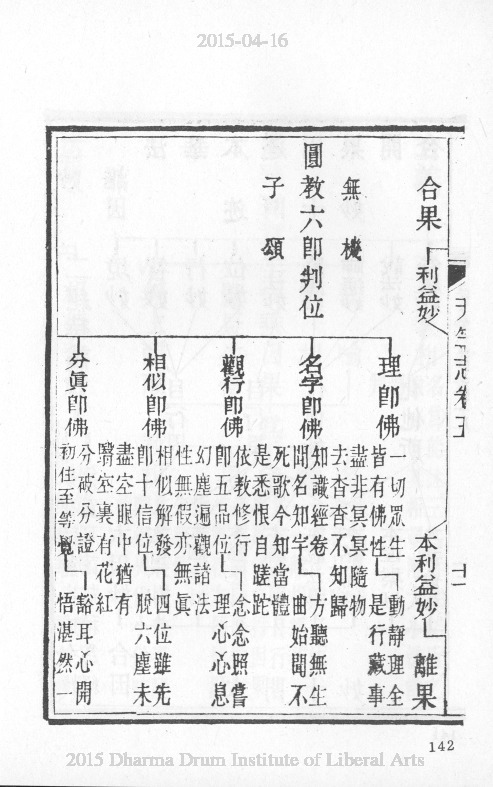 2015-04-16
志卷五
合果 利益妙 本利益妙 離果
無機
圓教六即判位
子頌
理即佛
一切眾生 動靜理全
皆有佛性 是行藏事
盡非冥冥隨物
去杳杳不知歸
名字即佛
知識經卷 方聽無生
聞名知字 曲始聞不
死歌今知當體
是悉恨自蹉跎
觀行即佛
依教修行 念念照嘗
即五品位 理心心息
幻塵遍觀諸法
性無假亦無眞
相似即佛
相似解發 四位雖先
即十信位 脫六塵未
盡空眼中猶有
翳空裏有花紅
分眞即佛
分破分證 豁耳心開
初住至等覺 悟湛然一
142
2015 Dharma Drum Institute of Liberal Arts